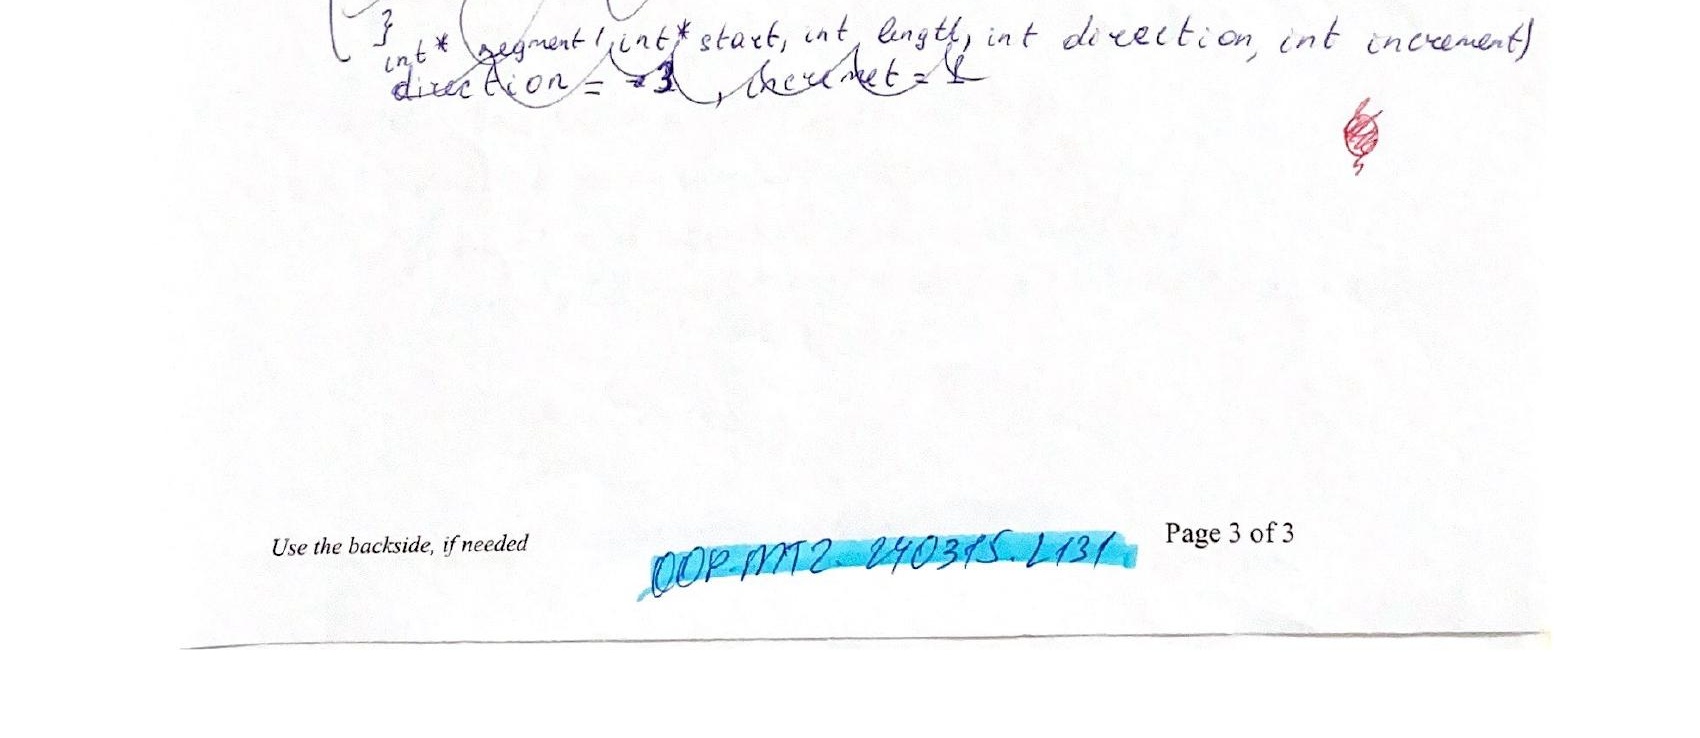 }
int* segment(int* start, int length, int direction, int increment)
direction = -3, incremet = 1
Use the backside, if needed
OOP.MT2.240315.L131.
Page 3 of 3